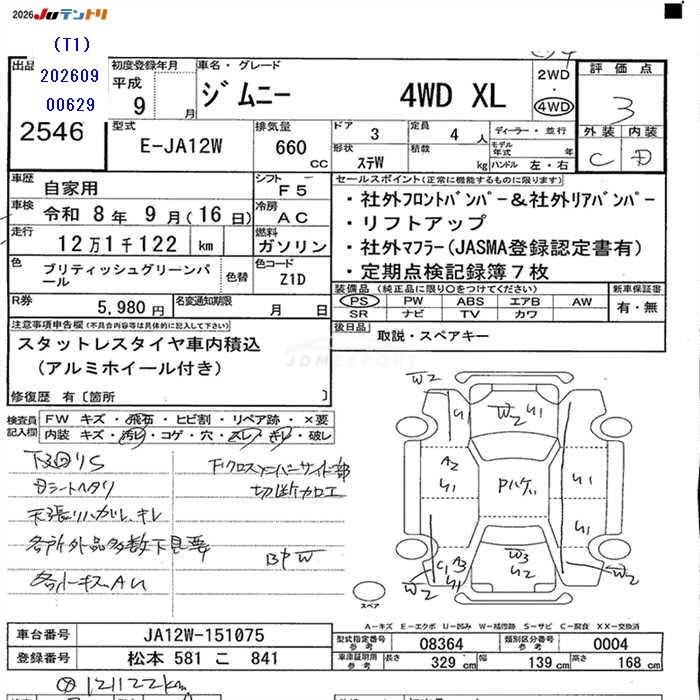 2026 JUテントリ
(T1)
202609
00629
出品
2546
初度登録年月
平成
9 月
車名・グレード
ジムニー 4WD XL
2WD
・
4WD
評価点
3
外装 内装
C D
型式
E-JA12W
排気量
660
CC
ドア 3
定員 4 人
ディーラー・並行
モデル年式 年
形状 ステW
積載 kg
ハンドル 左・右
車歴
自家用
シフト
F5
車検
令和 8年 9月(16日)
冷房
AC
走行
12万1千122 km
燃料
ガソリン
色
ブリティッシュグリーンパール
色替
色コード
Z1D
R券
5,980円
名変通知期限
月 日
セールスポイント(正常に機能するものに限ります)
・社外フロントバンパー&社外リアバンパー
・リフトアップ
・社外マフラー(JASMA登録認定書有)
・定期点検記録簿7枚
装備品(純正品に限り○をつけてください)
PS PW ABS エアB AW
SR ナビ TV カワ
新車保証書
有・無
後日品
取説・スペアキー
注意事項申告欄(不具合内容等は具体的に記入して下さい)
スタットレスタイヤ車内積込
(アルミホイール付き)
修復歴 有〔箇所 〕
検査員記入欄
FW キズ・飛石・ヒビ割・リペア跡・×要
内装 キズ・汚レ・コゲ・穴・スレ・キレ・破レ
下回りS
Dシートヘタリ
天張リハガレ、キレ
各所外品多数下見要
各所キズ、AU
Fクロスメンバーサイド部
切断加工
BP W
W2
U1
W2 U1
A2
U1
Pハゲ
U1
U1
W3
U2
C1 A3
U1
W2
W2
スペア
A-キズ E-エクボ U-凹み W-補修跡 S-サビ C-腐食 XX-交換済
車台番号 JA12W-151075
登録番号 松本 581 こ 841
型式指定番号 参考 08364
類別区分番号 参考 0004
車庫証明用 参考 長さ 329 cm 幅 139 cm 高さ 168 cm
JDMEXPORT
121122km